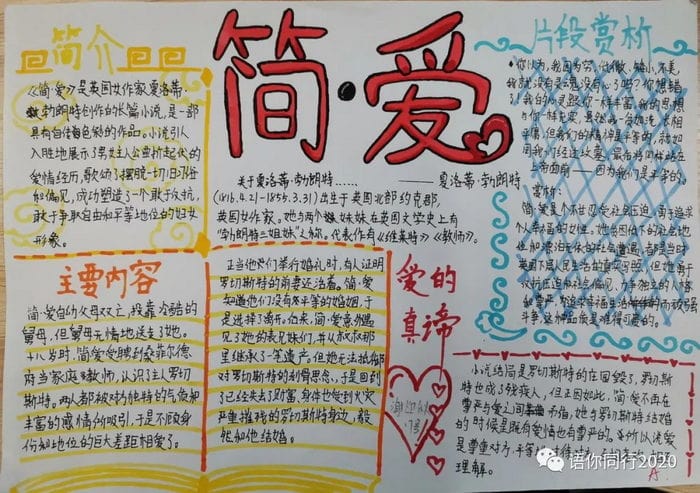 简介
《简·爱》是英国女作家夏洛蒂·
勃朗特创作的长篇小说，是一部
具有自传色彩的作品。小说引人
入胜地展示了男女主人公曲折起伏的
爱情经历，歌颂了摆脱一切旧习俗
和偏见，成功塑造了一个敢于反抗，
敢于争取自由和平等地位的妇女
形象。
简·爱
关于夏洛蒂·勃朗特……
——夏洛蒂·勃朗特
(1816.4.21-1855.3.31)出生于英国北部约克郡，
英国女作家。她与两个妹妹在英国文学史上有
“勃朗特三姐妹”之称。代表作有《维莱特》《教师》。
片段赏析
你以为，我因为穷、低微、矮小、不美，
我就没有灵魂没有心了吗？你想错了
我的灵魂跟你一样丰富，我的思想
与你一样充实，虽然
平俱，但我们的精神是平等的，就如
同我们经过坟墓，最后将同样站在
上帝面前——因为我们是平等的。
赏析：
简·爱是个不甘忍受社会压迫，勇于追求
个人幸福的女性。她
当时
英国下层人民生活的真实写照。但她勇于
反抗压迫和社会偏见，力争独立的人格
和尊严，为追求幸福生活而顽强
斗争，这种品质是难得可爱的。
主要内容
简·爱自幼父母双亡，投靠冷酷的
舅母，但舅母无情地送走了她。
十八岁时，简·爱受聘到桑菲尔德
府当家庭教师，认识了主人罗切
斯特。两人都被对方独特的气质和
丰富的感情所吸引，于是不顾身
份和地位的巨大差距相爱了。
正当他们举行婚礼时，有人证明
罗切斯特的前妻还活着。简·爱
知道他们没有平等的婚姻，于
是选择了离开。后来，简·爱意外遇
见了她的表兄妹们，并从叔叔那
里继承了一笔遗产，但她无法抵御
对罗切斯特的刻骨思念，于是回到
了已经失去了财富、身体也受到火灾
严重摧残的罗切斯特身边，毅
然和他结婚。
爱的
真谛
小说结局是罗切斯特的庄园毁了，罗切斯
特也成了残疾人，但正因如此，简·爱不再在
尊严与爱之间矛盾，她与罗切斯特结婚
的时候是既有爱情也有尊严的。
是尊重对方，平等
理解。
A
语你同行2020